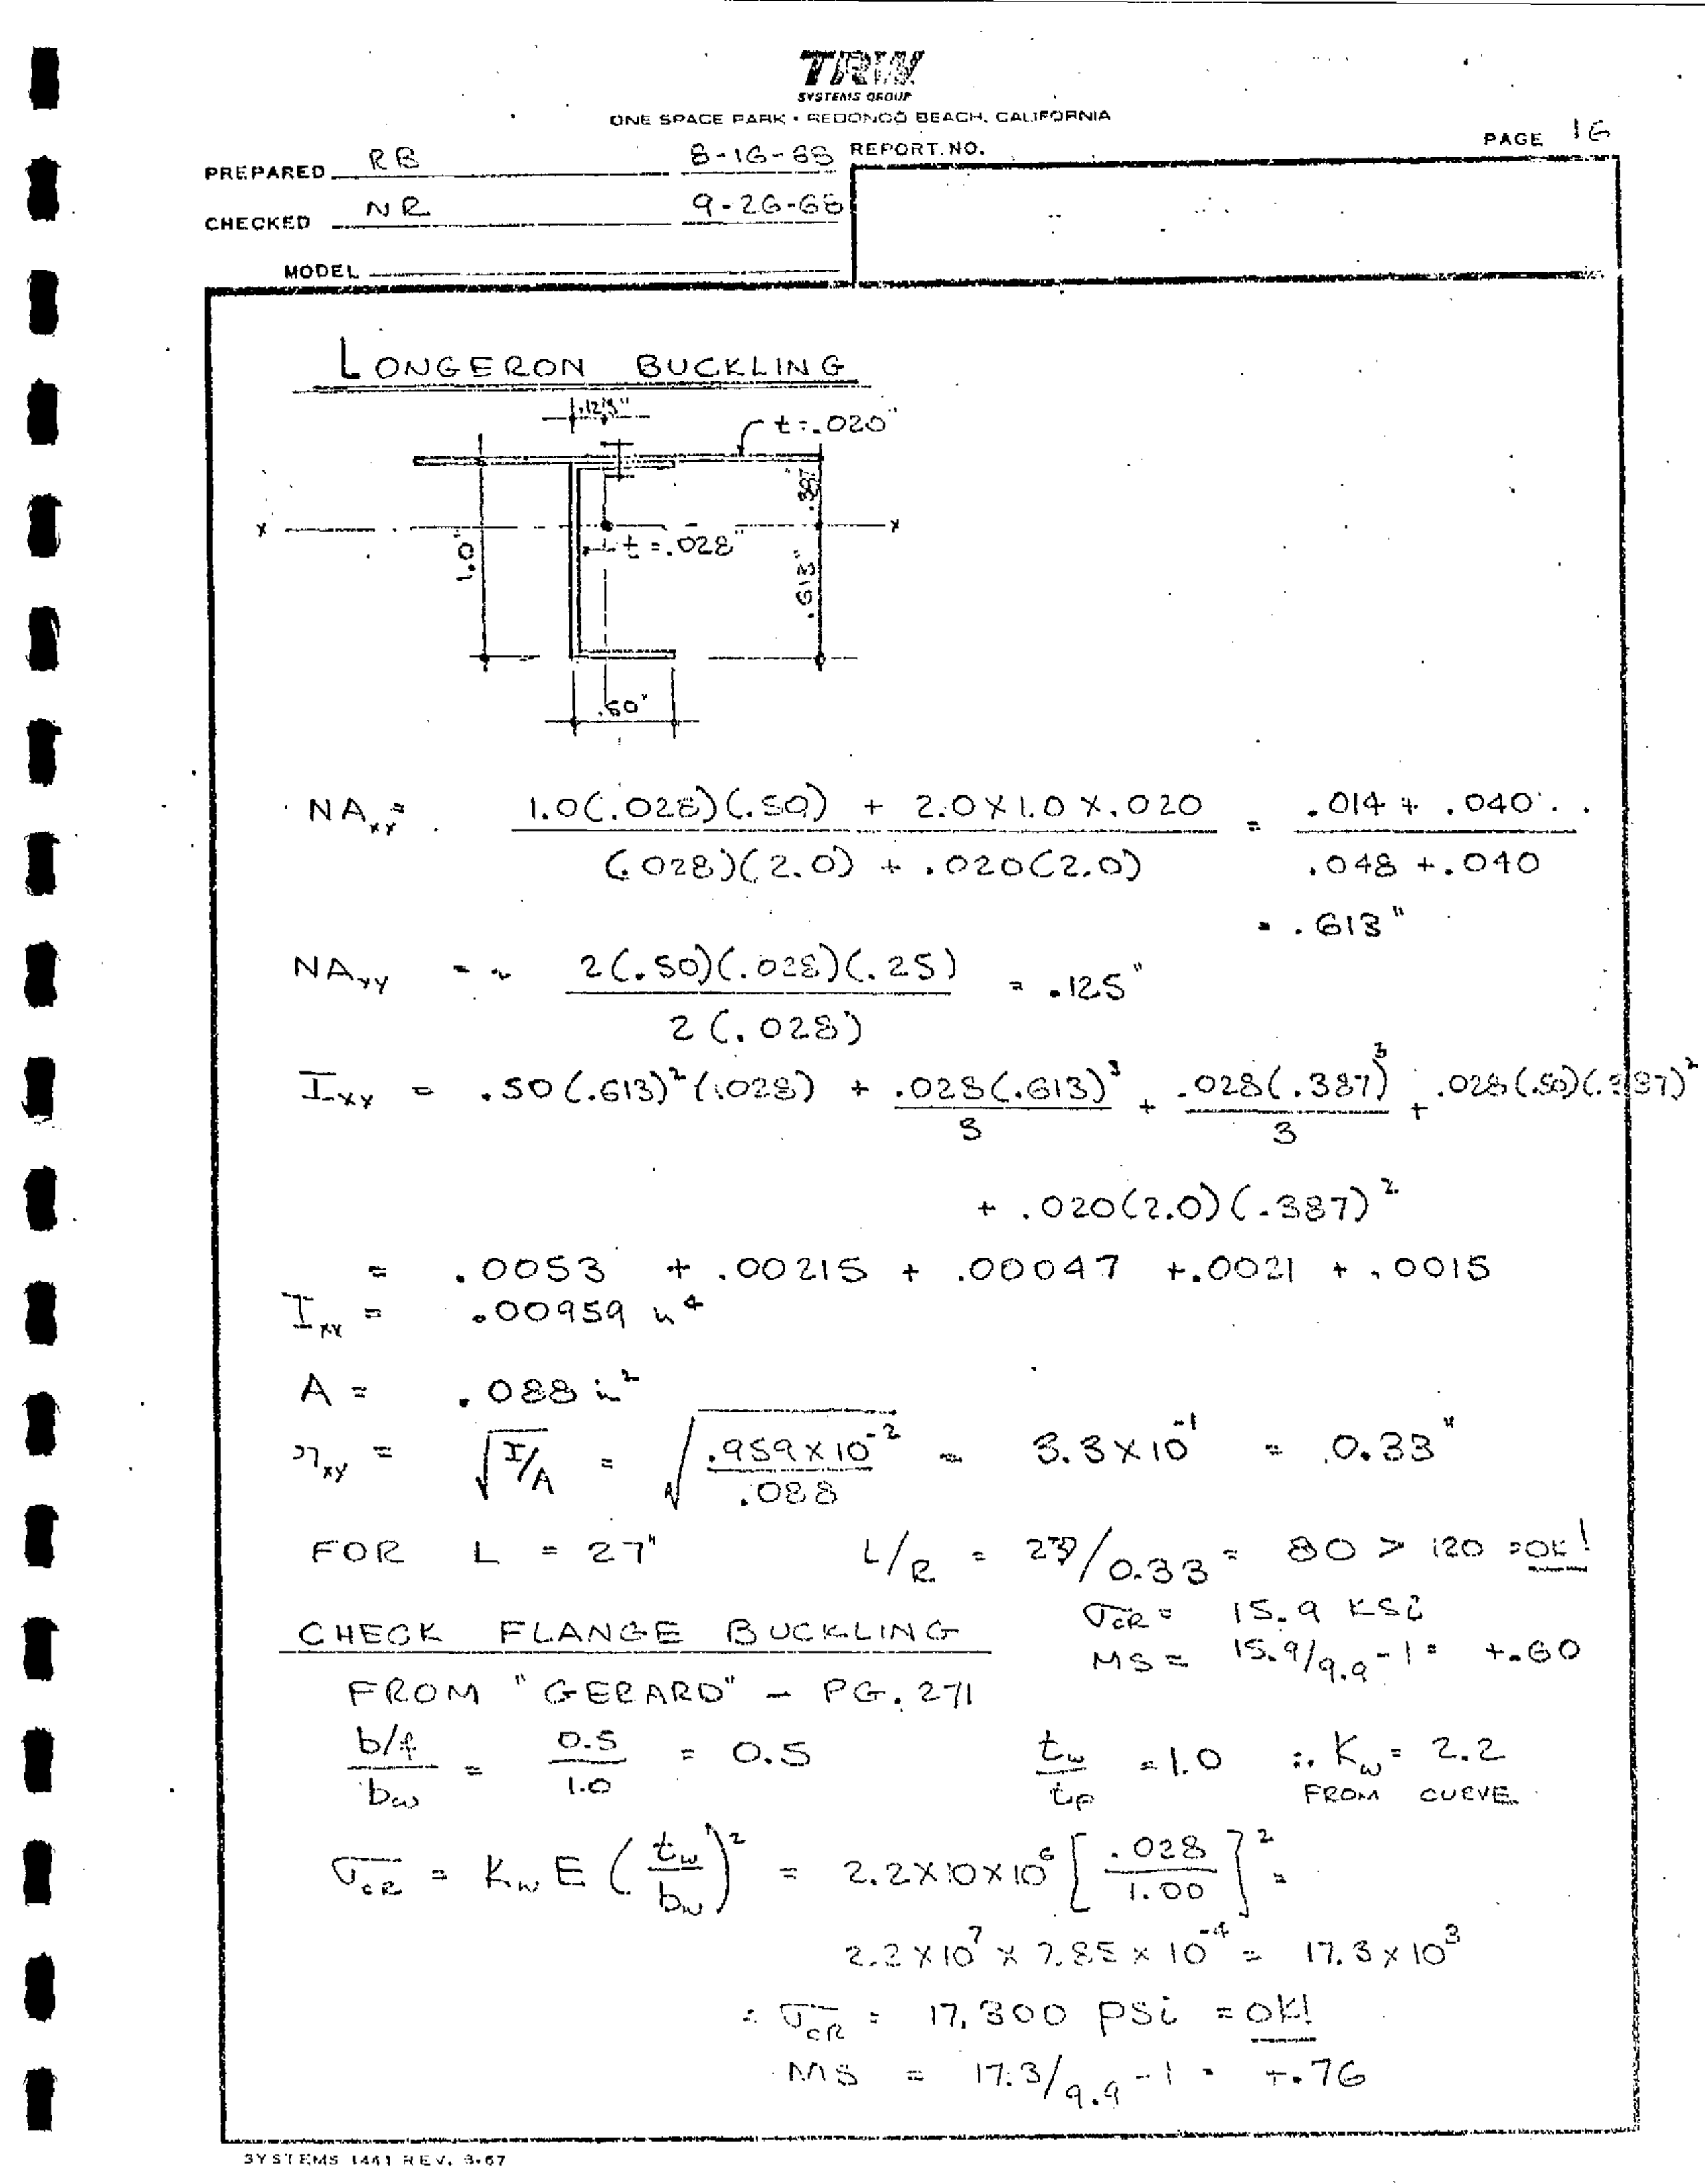 TRW
SYSTEMS GROUP
ONE SPACE PARK • REDONDO BEACH, CALIFORNIA
PREPARED RB 8-16-68 REPORT NO. PAGE 16
CHECKED NR 9-26-68
MODEL
LONGERON BUCKLING
.125"
t=.020"
.387"
x x
t=.028"
1.0"
.613"
.50"
NAxx = 1.0(.028)(.50) + 2.0×1.0×.020 / (.028)(2.0) + .020(2.0) = .014 + .040 / .048 + .040
= .613"
NAyy = ~ 2(.50)(.028)(.25) / 2(.028) = .125"
Ixx = .50(.613)²(.028) + .028(.613)³/3 + .028(.387)³/3 + .028(.50)(.387)²
+ .020(2.0)(.387)²
= .0053 + .00215 + .00047 + .0021 + .0015
Ixx = .00959 in⁴
A = .088 in²
rxy = √I/A = √.959×10⁻²/.088 = 3.3×10⁻¹ = 0.33"
FOR L = 27" L/R = 27/0.33 = 80 > 120 = OK!
σCR = 15.9 KSi
CHECK FLANGE BUCKLING
MS = 15.9/9.9 - 1 = +.60
FROM "GERARD" - PG. 271
b/f / bw = 0.5/1.0 = 0.5 tw/tF = 1.0 ∴ Kw = 2.2
FROM CURVE
σCR = Kw E (tw/bw)² = 2.2×10×10⁶ [.028/1.00]² =
2.2×10⁷ × 7.85 × 10⁻⁴ = 17.3×10³
∴ σCR = 17,300 psi = OK!
MS = 17.3/9.9 - 1 = +.76
SYSTEMS 1441 REV. 8-67